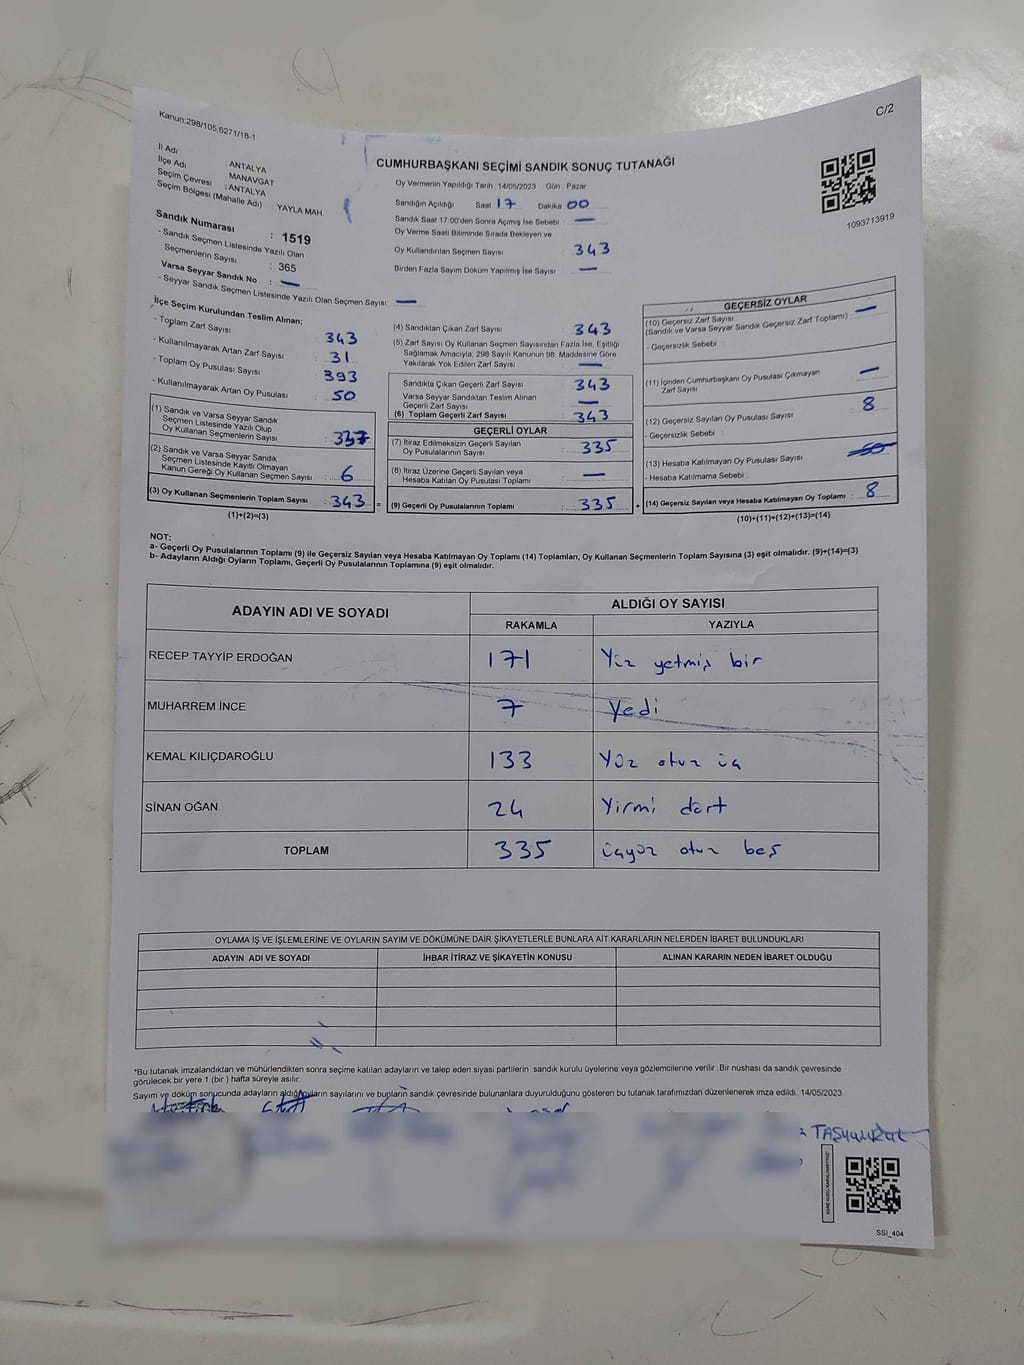 Kanun:298/105,6271/18-1
C/2
İl Adı : ANTALYA
İlçe Adı : MANAVGAT
Seçim Çevresi : ANTALYA
Seçim Bölgesi (Mahalle Adı) : YAYLA MAH
Sandık Numarası : 1519
- Sandık Seçmen Listesinde Yazılı Olan
Seçmenlerin Sayısı : 365
Varsa Seyyar Sandık No : —
- Seyyar Sandık Seçmen Listesinde Yazılı Olan Seçmen Sayısı : —
CUMHURBAŞKANI SEÇİMİ SANDIK SONUÇ TUTANAĞI
Oy Vermenin Yapıldığı Tarih :14/05/2023 Gün : Pazar
Sandığın Açıldığı Saat 17 Dakika 00
Sandık Saat 17.00'den Sonra Açımış İse Sebebi : —
Oy Verme Saati Bitiminde Sırada Bekleyen ve
Oy Kullandırılan Seçmen Sayısı : 343
Birden Fazla Sayım Döküm Yapılmış İse Sayısı : —
1093713919
İlçe Seçim Kurulundan Teslim Alınan;
- Toplam Zarf Sayısı : 343
- Kullanılmayarak Artan Zarf Sayısı : 31
- Toplam Oy Pusulası Sayısı : 393
- Kullanılmayarak Artan Oy Pusulası : 50
(1) Sandık ve Varsa Seyyar Sandık
Seçmen Listesinde Yazılı Olup
Oy Kullanan Seçmenlerin Sayısı : 337
(2) Sandık ve Varsa Seyyar Sandık
Seçmen Listesinde Kayıtlı Olmayan
Kanun Gereği Oy Kullanan Seçmen Sayısı : 6
(3) Oy Kullanan Seçmenlerin Toplam Sayısı : 343 =
(1)+(2)=(3)
(4) Sandıktan Çıkan Zarf Sayısı : 343
(5) Zarf Sayısı Oy Kullanan Seçmen Sayısından Fazla İse, Eşitliği
Sağlamak Amacıyla, 298 Sayılı Kanunun 98. Maddesine Göre
Yakılarak Yok Edilen Zarf Sayısı : —
Sandıkta Çıkan Geçerli Zarf Sayısı : 343
Varsa Seyyar Sandıktan Teslim Alınan
Geçerli Zarf Sayısı : —
(6) Toplam Geçerli Zarf Sayısı : 343
GEÇERLİ OYLAR
(7) İtiraz Edilmeksizin Geçerli Sayılan
Oy Pusulalarının Sayısı : 335
(8) İtiraz Üzerine Geçerli Sayılan veya
Hesaba Katılan Oy Pusulası Toplamı : —
(9) Geçerli Oy Pusulalarının Toplamı : 335 +
GEÇERSİZ OYLAR
(10) Geçersiz Zarf Sayısı
(Sandık ve Varsa Seyyar Sandık Geçersiz Zarf Toplamı) : —
- Geçersizlik Sebebi :
(11) İçinden Cumhurbaşkanı Oy Pusulası Çıkmayan
Zarf Sayısı : —
(12) Geçersiz Sayılan Oy Pusulası Sayısı : 8
- Geçersizlik Sebebi :
(13) Hesaba Katılmayan Oy Pusulası Sayısı :
- Hesaba Katılmama Sebebi :
(14) Geçersiz Sayılan veya Hesaba Katılmayan Oy Toplamı : 8
(10)+(11)+(12)+(13)=(14)
NOT:
a- Geçerli Oy Pusulalarının Toplamı (9) ile Geçersiz Sayılan veya Hesaba Katılmayan Oy Toplamı (14) Toplamları, Oy Kullanan Seçmenlerin Toplam Sayısına (3) eşit olmalıdır. (9)+(14)=(3)
b- Adayların Aldığı Oyların Toplamı, Geçerli Oy Pusulalarının Toplamına (9) eşit olmalıdır.
ADAYIN ADI VE SOYADI ALDIĞI OY SAYISI
RAKAMLA YAZIYLA
RECEP TAYYİP ERDOĞAN 171 Yüz yetmiş bir
MUHARREM İNCE 7 Yedi
KEMAL KILIÇDAROĞLU 133 Yüz otuz üç
SİNAN OĞAN 24 Yirmi dört
TOPLAM 335 üçyüz otuz beş
OYLAMA İŞ VE İŞLEMLERİNE VE OYLARIN SAYIM VE DÖKÜMÜNE DAİR ŞİKAYETLERLE BUNLARA AİT KARARLARIN NELERDEN İBARET BULUNDUKLARI
ADAYIN ADI VE SOYADI İHBAR İTİRAZ VE ŞİKAYETİN KONUSU ALINAN KARARIN NEDEN İBARET OLDUĞU
*Bu tutanak imzalandıktan ve mühürlendikten sonra seçime katılan adayların ve talep eden siyasi partilerin sandık kurulu üyelerine veya gözlemcilerine verilir .Bir nüshası da sandık çevresinde
görülecek bir yere 1 (bir ) hafta süreyle asılır.
Sayım ve döküm sonucunda adayların aldığı oyların sayılarını ve bunların sandık çevresinde bulunanlara duyurulduğunu gösteren bu tutanak tarafımızdan düzenlenerek imza edildi. 14/05/2023
SSI_404